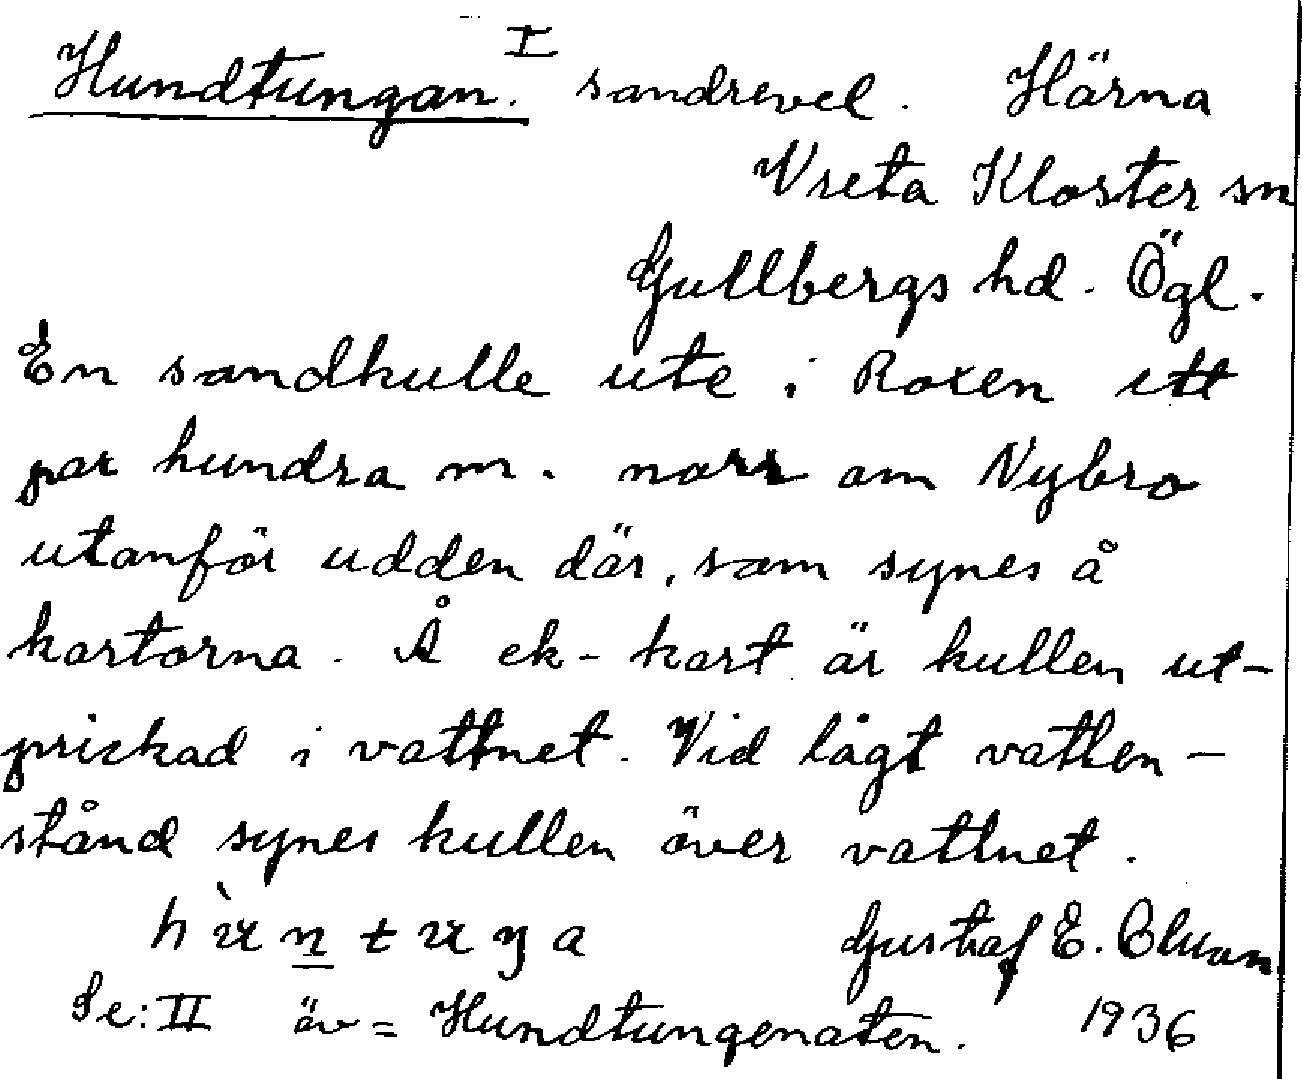 Hundtungan. I sandrevel. Härna
Vreta Kloster sn
Gullbergs hd. Ögl.
En sandkulle ute i Roxen ett
par hundra m. norr om Nybro
utanför udden där, som synes å
kartorna. Å ek-kart är kullen ut-
prickad i vattnet. Vid lågt vatten-
stånd synes kullen över vattnet.
Gustaf E.
Se: II äv = Hundtungenaten. 1936